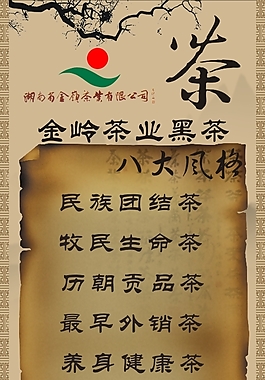 茶
湖南省金岭茶业有限公司
金岭茶业黑茶
八大风格
民族团结茶
牧民生命茶
历朝贡品茶
最早外销茶
养身健康茶